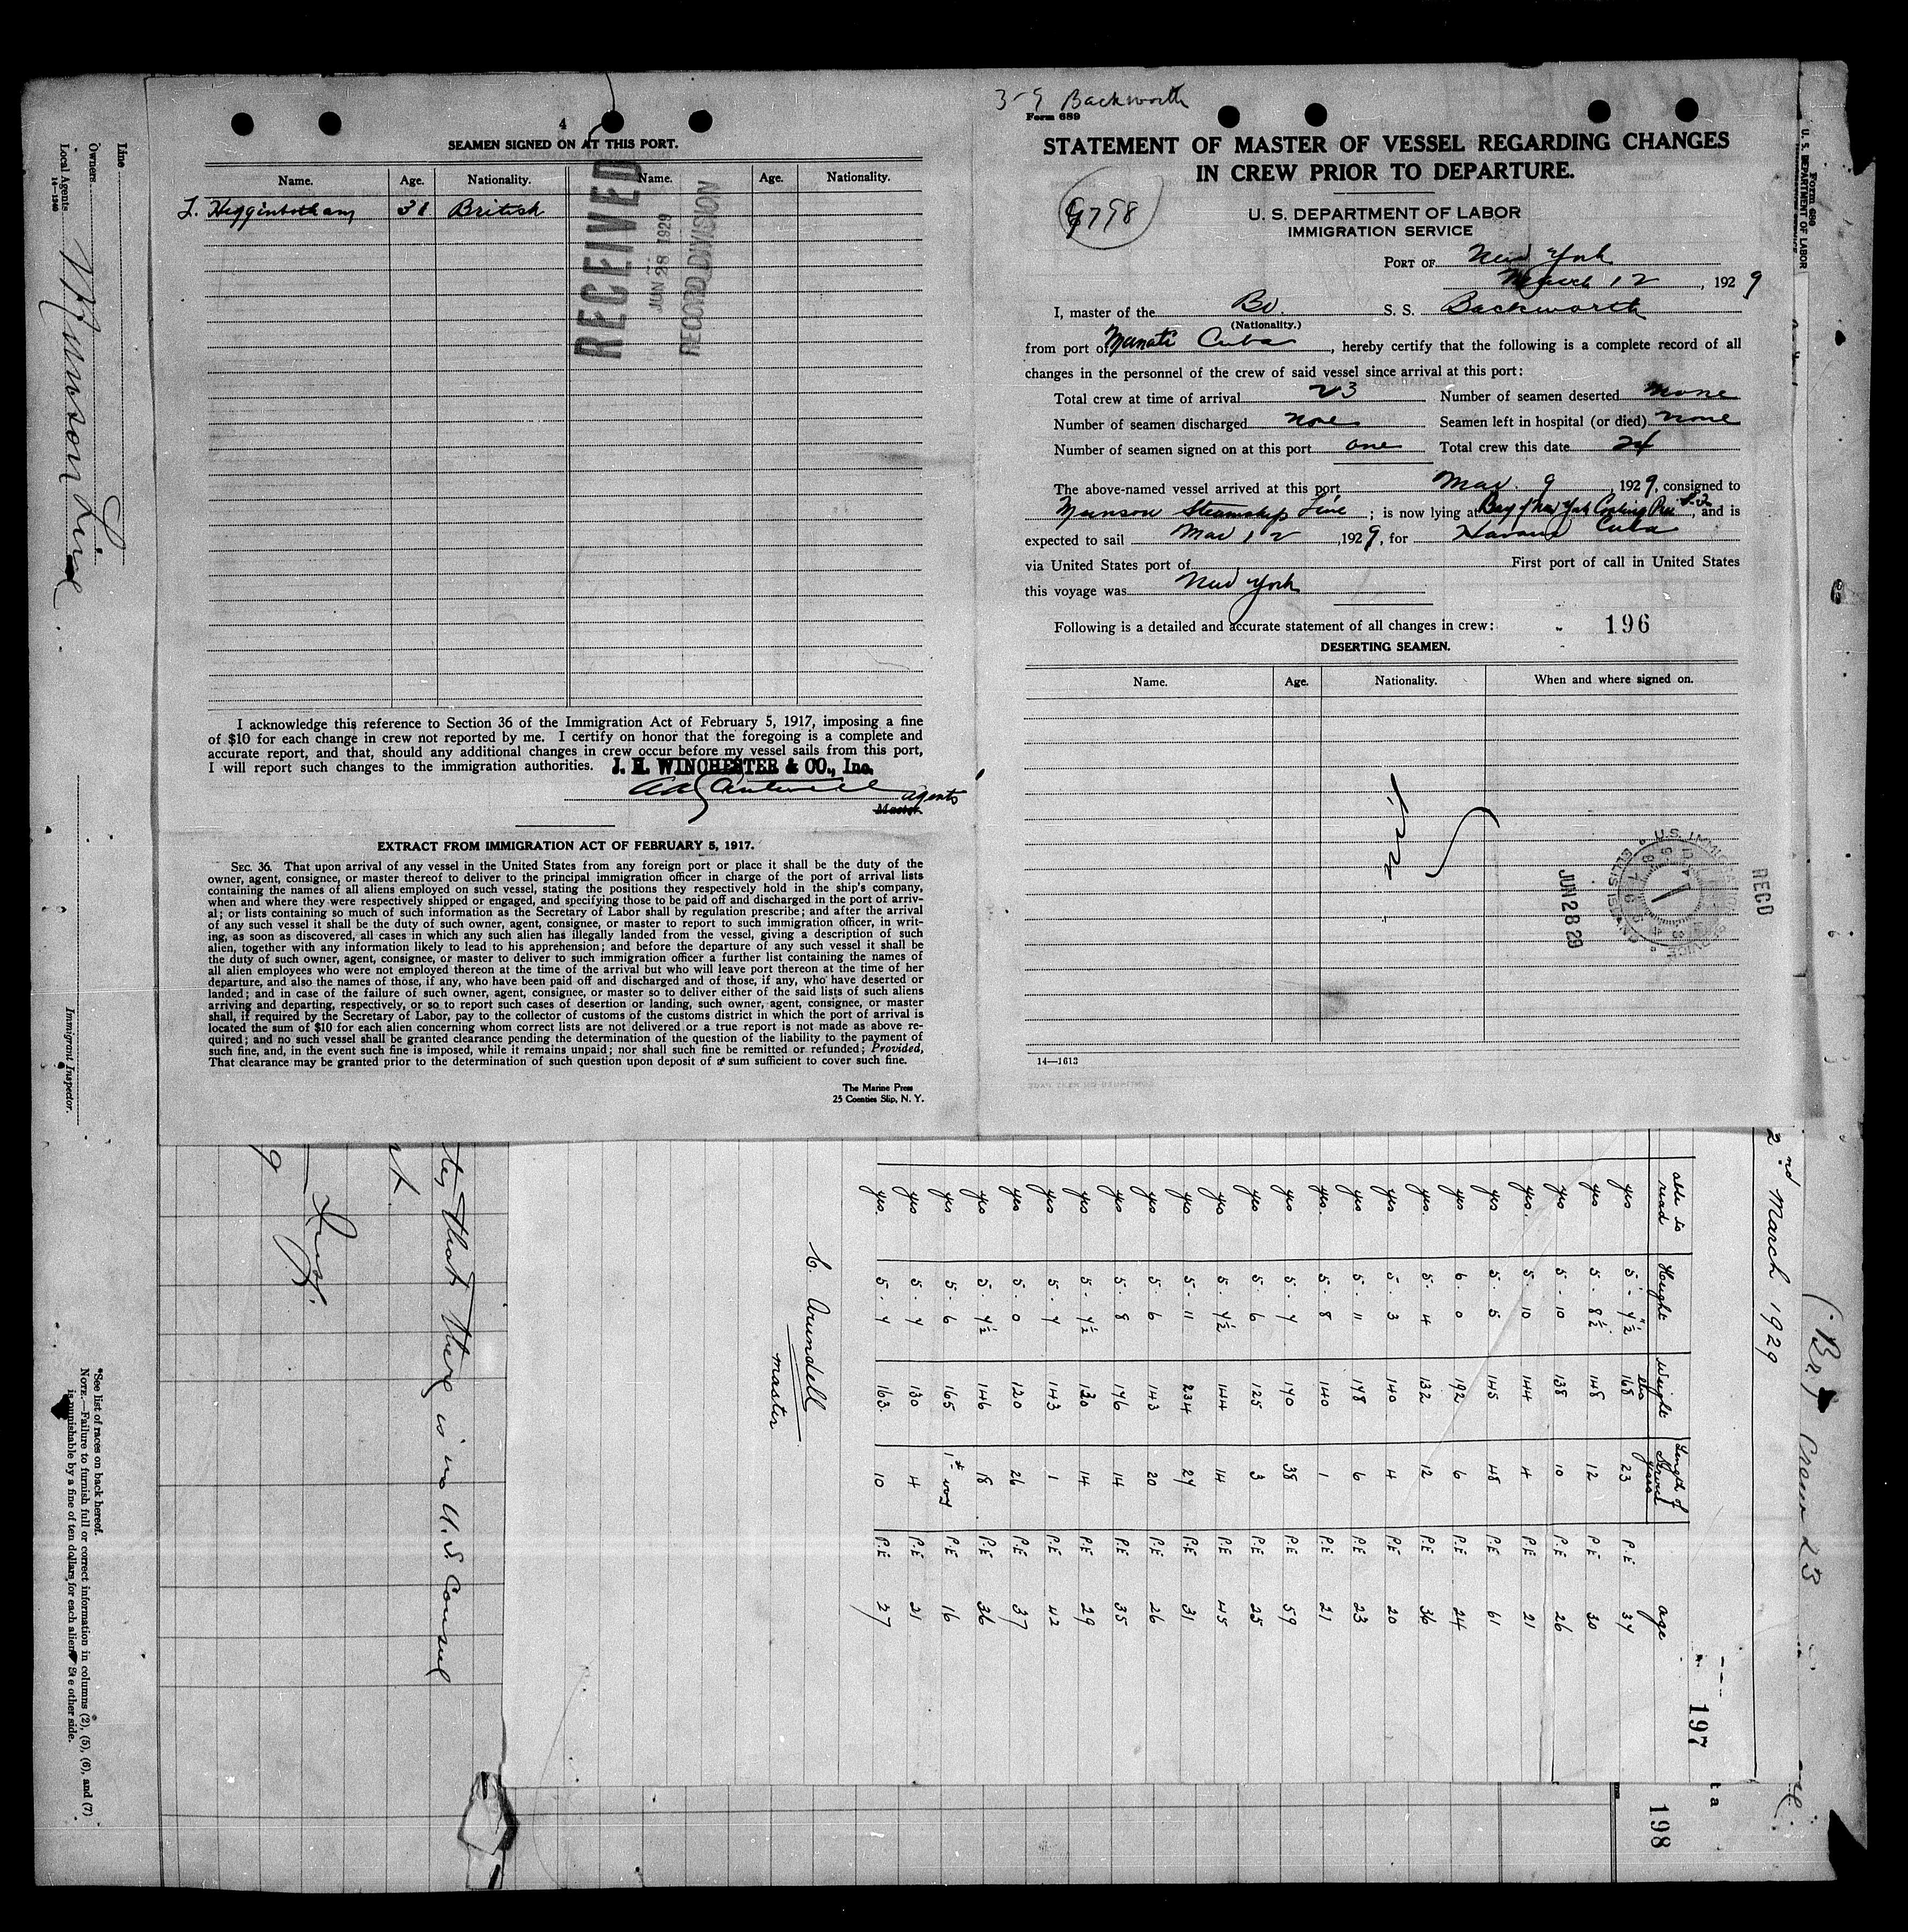 4
SEAMEN SIGNED ON AT THIS PORT.
Name. Age. Nationality. Name. Age. Nationality.
J. Higginbotham 31 British
RECEIVED
JUN 28 1929
RECORD DIVISION
I acknowledge this reference to Section 36 of the Immigration Act of February 5, 1917, imposing a fine
of $10 for each change in crew not reported by me. I certify on honor that the foregoing is a complete and
accurate report, and that, should any additional changes in crew occur before my vessel sails from this port,
I will report such changes to the immigration authorities. J. H. WINCHESTER & CO., Inc.
agents
Master.
EXTRACT FROM IMMIGRATION ACT OF FEBRUARY 5, 1917.
SEC. 36. That upon arrival of any vessel in the United States from any foreign port or place it shall be the duty of the
owner, agent, consignee, or master thereof to deliver to the principal immigration officer in charge of the port of arrival lists
containing the names of all aliens employed on such vessel, stating the positions they respectively hold in the ship's company,
when and where they were respectively shipped or engaged, and specifying those to be paid off and discharged in the port of arriv-
al; or lists containing so much of such information as the Secretary of Labor shall by regulation prescribe; and after the arrival
of any such vessel it shall be the duty of such owner, agent, consignee, or master to report to such immigration officer, in writ-
ing, as soon as discovered, all cases in which any such alien has illegally landed from the vessel, giving a description of such
alien, together with any information likely to lead to his apprehension; and before the departure of any such vessel it shall be
the duty of such owner, agent, consignee, or master to deliver to such immigration officer a further list containing the names of
all alien employees who were not employed thereon at the time of the arrival but who will leave port thereon at the time of her
departure, and also the names of those, if any, who have been paid off and discharged and of those, if any, who have deserted or
landed; and in case of the failure of such owner, agent, consignee, or master so to deliver either of the said lists of such aliens
arriving and departing, respectively, or so to report such cases of desertion or landing, such owner, agent, consignee, or master
shall, if required by the Secretary of Labor, pay to the collector of customs of the customs district in which the port of arrival is
located the sum of $10 for each alien concerning whom correct lists are not delivered or a true report is not made as above re-
quired; and no such vessel shall be granted clearance pending the determination of the question of the liability to the payment of
such fine, and, in the event such fine is imposed, while it remains unpaid; nor shall such fine be remitted or refunded; Provided,
That clearance may be granted prior to the determination of such question upon deposit of a sum sufficient to cover such fine.
The Marine Press
25 Coenties Slip, N. Y.
3-9 Backworth
Form 689
STATEMENT OF MASTER OF VESSEL REGARDING CHANGES
IN CREW PRIOR TO DEPARTURE.
U. S. DEPARTMENT OF LABOR
IMMIGRATION SERVICE
PORT OF New York
March 12, 1929
I, master of the Br. S. S. Backworth
(Nationality.)
from port of Manati Cuba, hereby certify that the following is a complete record of all
changes in the personnel of the crew of said vessel since arrival at this port:
Total crew at time of arrival 23 Number of seamen deserted none
Number of seamen discharged none Seamen left in hospital (or died) none
Number of seamen signed on at this port one Total crew this date 24
The above-named vessel arrived at this port Mar. 9, 1929, consigned to
Munson Steamship Line; is now lying at Bay of New York Coaling Pier, and is
expected to sail Mar 12, 1929, for Havana Cuba
via United States port of First port of call in United States
this voyage was New York
Following is a detailed and accurate statement of all changes in crew: 196
DESERTING SEAMEN.
Name. Age. Nationality. When and where signed on.
JUN 28 29
RECD
14—1613
Line
Owners
Local Agents
14—1346
Munson Line
Immigrant Inspector.
*See list of races on back hereof.
NOTE.—Failure to furnish full or correct information in columns (2), (5), (6), and (7)
is punishable by a fine of ten dollars for each alien. See other side.
Form 689
U. S. DEPARTMENT OF LABOR
(Br) Crew 23
2nd March 1929
able to read Height Weight lbs Length of Service years age
yes 5 - 7½" 168 23 P.E 37
yes 5 - 8½ 148 12 P.E 30
yes 5 - 10 138 10 P.E 26
yes. 5 - 10 144 4 P.E 21
yes 5 - 5 145 48 P.E 61
yes 6 - 0 192 6 P.E 24
yes 5 - 4 132 12 P.E 36
yes 5 - 3 140 4 P.E 20
yes 5 - 11 178 6 P.E 23
yes. 5 - 8 140 1 P.E 21
yes 5 - 7 170 38 P.E 59
yes. 5 - 6 125 3 P.E 25
yes 5 - 7½ 144 14 P.E 45
yes 5 - 11 234 27 P.E 31
yes 5 - 6 143 20 P.E 26
yes 5 - 8 176 14 P.E 35
yes 5 - 7½ 130 14 P.E 29
yes. 5 - 7 143 1 P.E 42
yes 5 - 0 120 26 P.E 37
yes 5 - 7½ 146 18 P.E 36
yes 5 - 6 165 1st voy P.E 16
yes 5 - 7 130 4 P.E 21
yes. 5 - 7 163. 10 P.E 27
C. Arundell
master
that there is no U.S. Consul
197
198